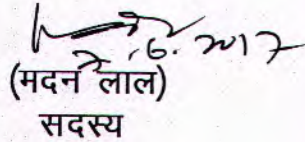 .6.2017
(मदन लाल)
सदस्य